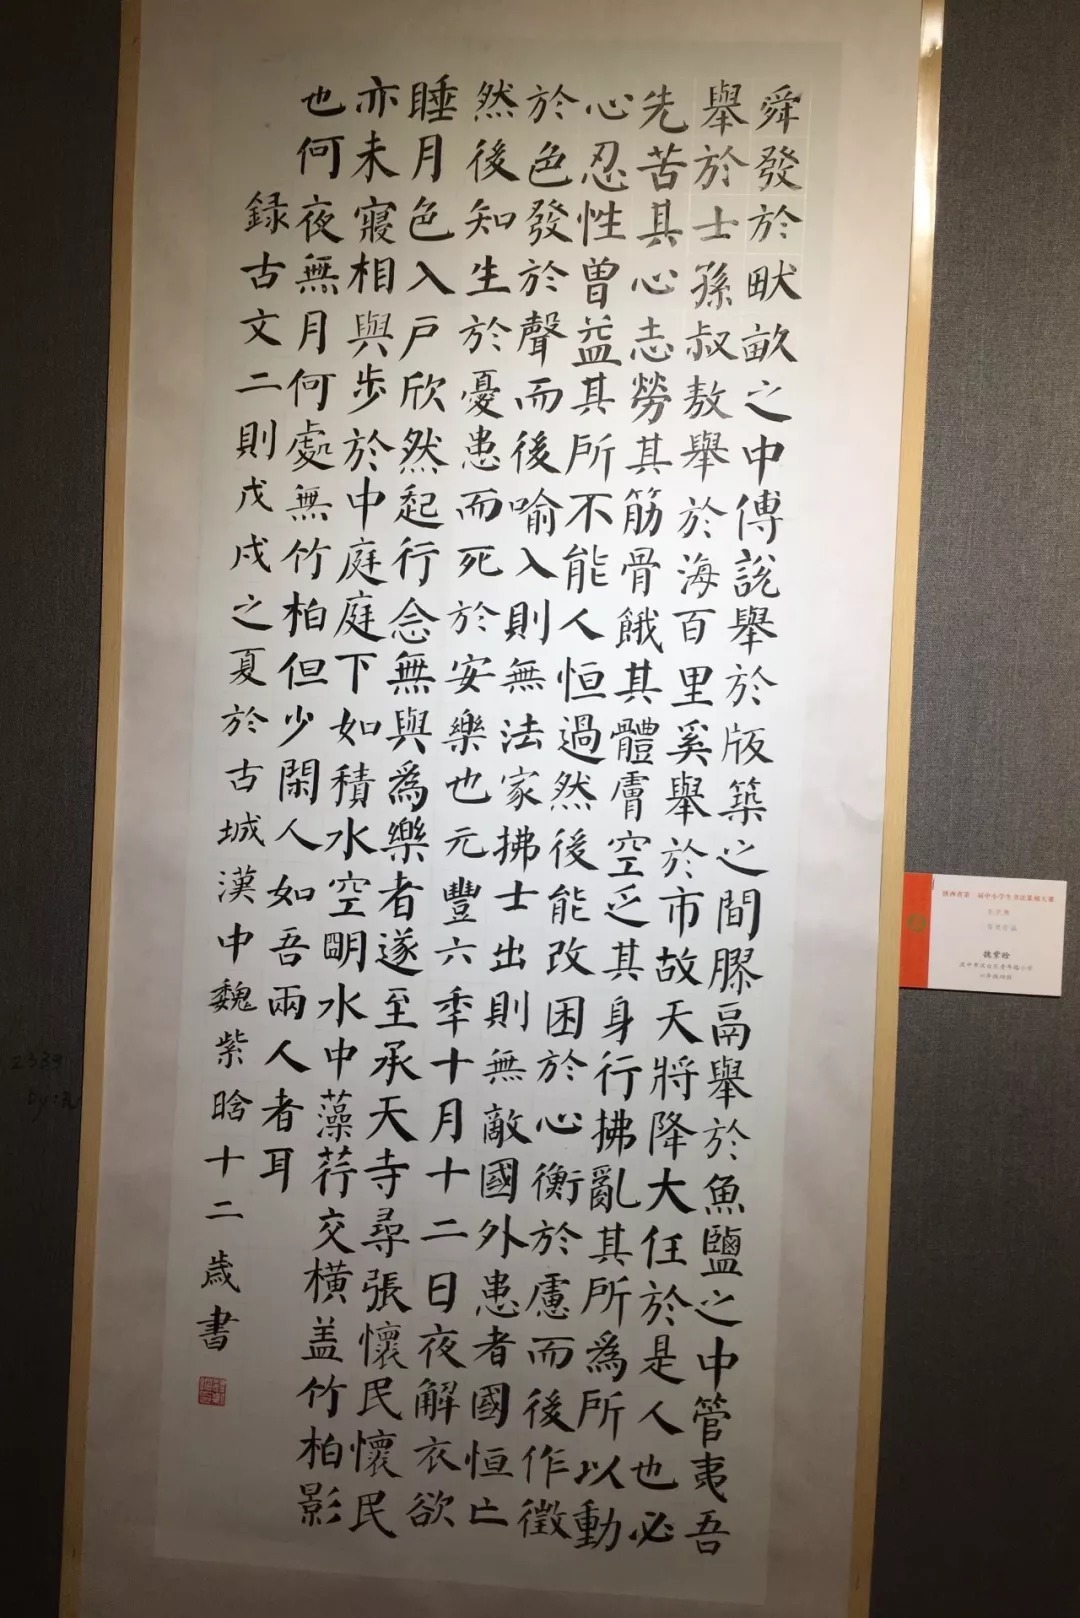 舜發於畎畝之中傅說舉於版築之間膠鬲舉於魚鹽之中管夷吾
舉於士孫叔敖舉於海百里奚舉於市故天將降大任於是人也必
先苦其心志勞其筋骨餓其體膚空乏其身行拂亂其所爲所以動
心忍性曾益其所不能人恒過然後能改困於心衡於慮而後作徵
於色發於聲而後喻入則無法家拂士出則無敵國外患者國恒亡
然後知生於憂患而死於安樂也元豐六秊十月十二日夜解衣欲
睡月色入戶欣然起行念無與爲樂者遂至承天寺尋張懷民懷民
亦未寢相與步於中庭庭下如積水空明水中藻荇交橫盖竹柏影
也何夜無月何處無竹柏但少閑人如吾兩人者耳
録古文二則戊戌之夏於古城漢中魏紫晗十二歲書
魏紫晗